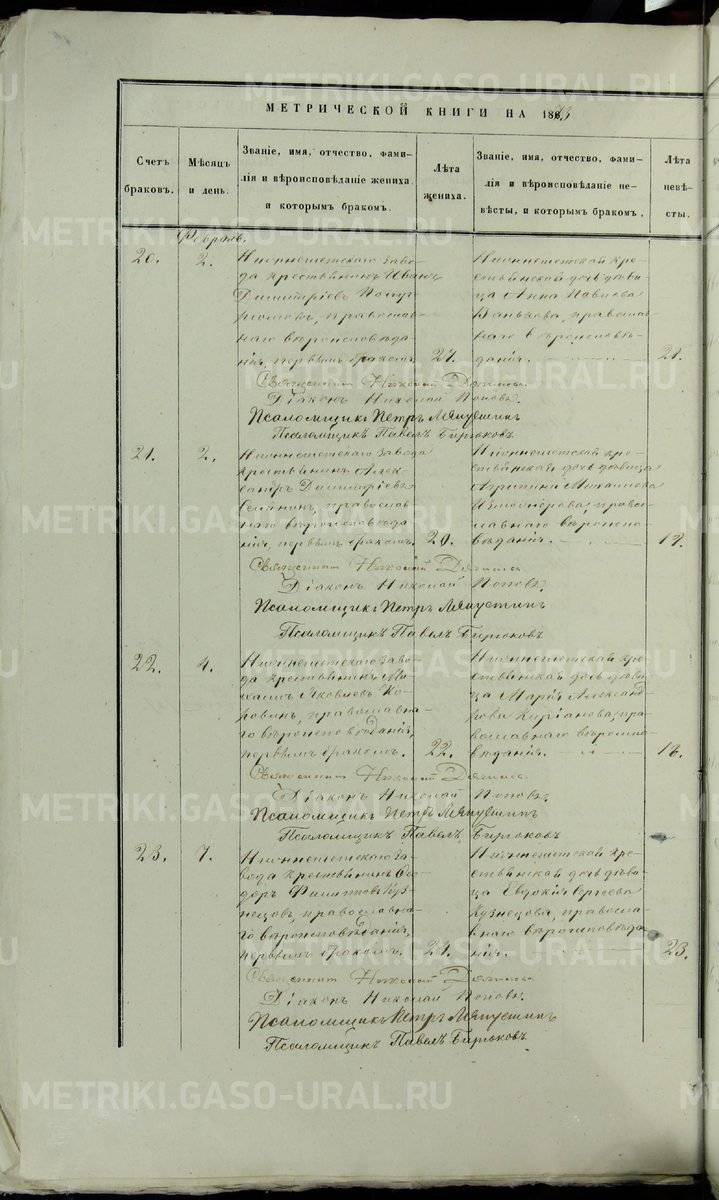 МЕТРИЧЕСКОЙ КНИГИ НА 1873
Счетъ браковъ.
Мѣсяцъ и день.
Званіе, имя, отчество, фами-
лія и вѣроисповѣданіе жениха
и которымъ бракомъ.
Лѣта жениха.
Званіе, имя, отчество, фами-
лія и вѣроисповѣданіе не-
вѣсты, и которымъ бракомъ,
Лѣта невѣ-
сты.
Февраль.
20.
2.
Нижнешетскаго заво-
да крестьянинъ Иванъ
Димитріевъ
православ-
наго вѣроисповѣда-
нія, первымъ бракомъ.
27.
Нижнешетской кре-
стьянской дочь дѣви-
ца Анна Павлова
православ-
наго вѣроисповѣ-
данія.
21.
Священникъ Николай
Діаконъ Николай Поповъ.
Псаломщикъ Петръ Ляпустинъ
Псаломщикъ Павелъ Бирюковъ
21.
2.
Нижнешетскаго завода
крестьянинъ Алек-
сандръ Димитріевъ
православ-
наго вѣроисповѣда-
нія, первымъ бракомъ.
20.
Нижнешетской кре-
стьянской дочь дѣвица
Агрипина
право-
славнаго вѣроиспо-
вѣданія.
Священникъ Николай
Діаконъ Николай Поповъ.
Псаломщикъ Петръ Ляпустинъ
Псаломщикъ Павелъ Бирюковъ
22.
4.
Нижнешетскаго заво-
да крестьянинъ Ми-
хаилъ Яковлевъ Ко-
ровинъ, православна-
го вѣроисповѣданія,
первымъ бракомъ.
22.
Нижнешетской кре-
стьянской дочь дѣви-
ца Марія Александ-
рова Киріанова, пра-
вославнаго вѣроиспо-
вѣданія.
18.
Священникъ Николай
Діаконъ Николай Поповъ.
Псаломщикъ Петръ Ляпустинъ
Псаломщикъ Павелъ Бирюковъ
23.
7.
Нижнешетскаго за-
вода крестьянинъ
Филиповъ Куз-
нецовъ, православна-
го вѣроисповѣданія,
первымъ бракомъ.
24.
Нижнешетской кре-
стьянской дочь дѣви-
ца Евдокія Сергеева
Кузнецова, правосла-
внаго вѣроисповѣда-
нія.
23.
Священникъ Николай
Діаконъ Николай Поповъ.
Псаломщикъ Петръ Ляпустинъ
Псаломщикъ Павелъ Бирюковъ
METRIKI.GASO-URAL.RU